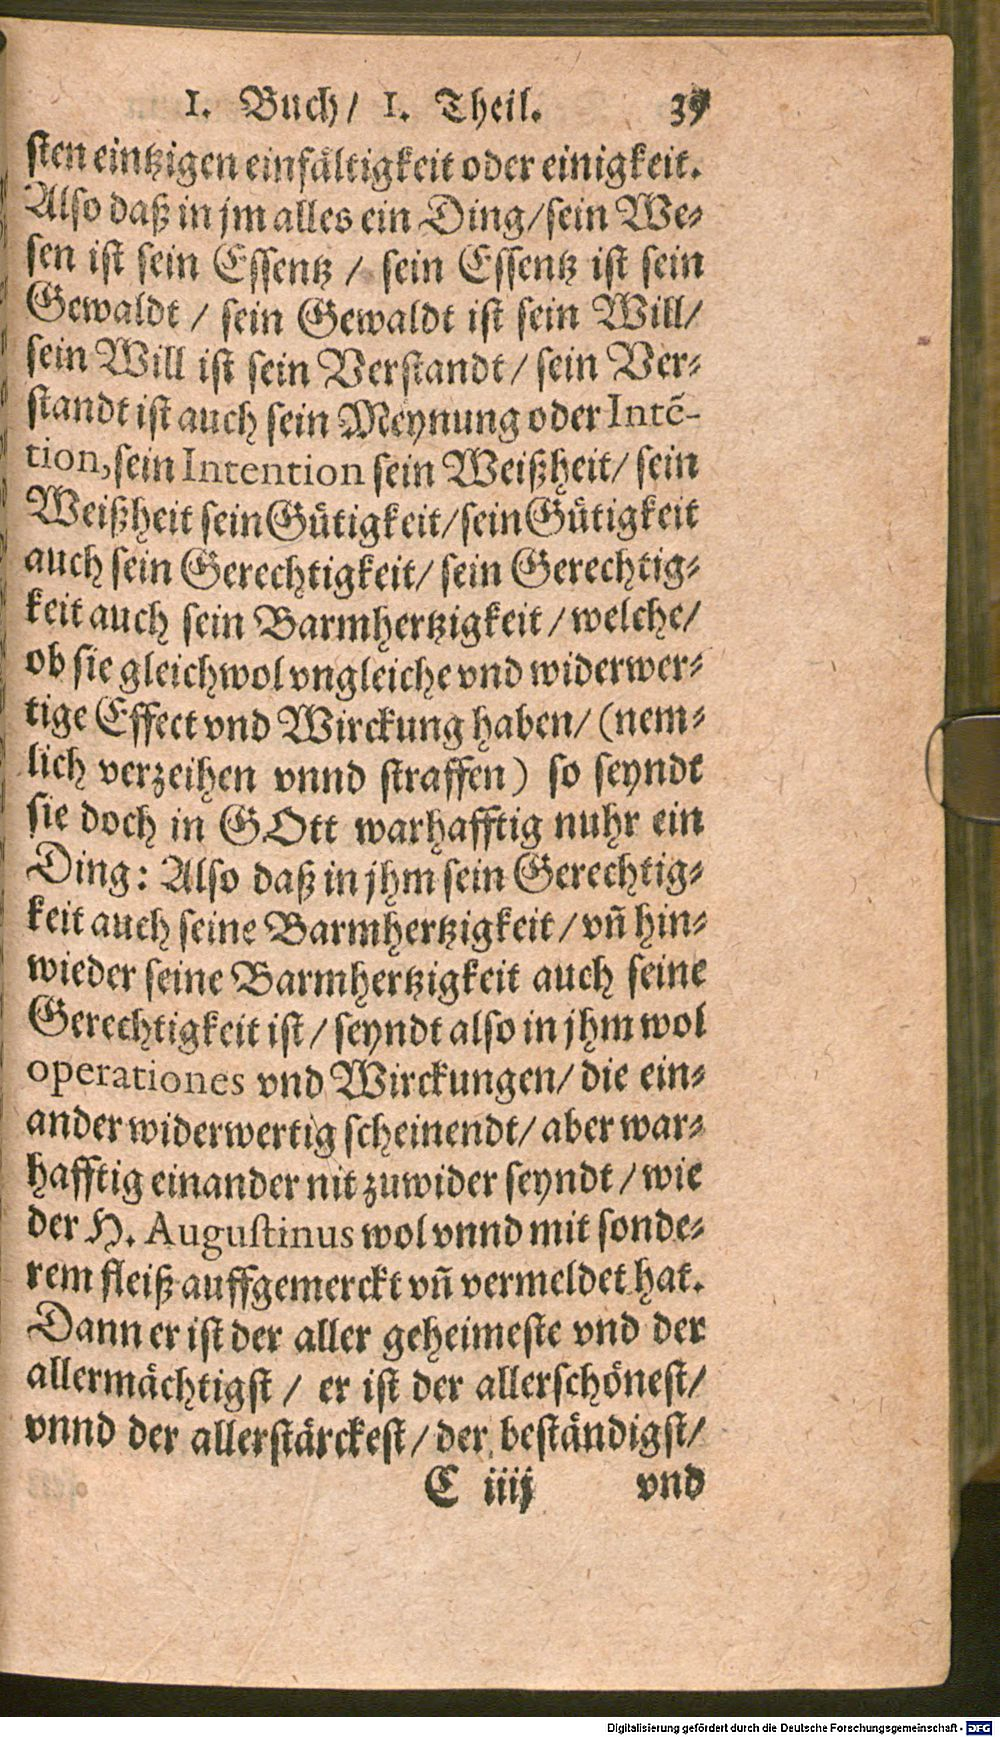 I. Buch/ I. Theil. 39
sten eintzigen einfältigkeit oder einigkeit.
Also daß in jm alles ein Ding/sein We-
sen ist sein Essentz / sein Essentz ist sein
Gewaldt / sein Gewaldt ist sein Will/
sein Will ist sein Verstandt / sein Ver-
standt ist auch sein Meynung oder Intẽ-
tion, sein Intention sein Weißheit/ sein
Weißheit sein Gütigkeit/sein Gütigkeit
auch sein Gerechtigkeit/ sein Gerechtig-
keit auch sein Barmhertzigkeit / welche/
ob sie gleichwol vngleiche vnd widerwer-
tige Effect vnd Wirckung haben/ (nem-
lich verzeihen vnnd straffen) so seyndt
sie doch in GOtt warhafftig nuhr ein
Ding: Also daß in jhm sein Gerechtig-
keit auch seine Barmhertzigkeit / vñ hin-
wieder seine Barmhertzigkeit auch seine
Gerechtigkeit ist / seyndt also in jhm wol
operationes vnd Wirckungen/ die ein-
ander widerwertig scheinendt/ aber war-
hafftig einander nit zuwider seyndt / wie
der H. Augustinus wol vnnd mit sonde-
rem fleiß auffgemerckt vñ vermeldet hat.
Dann er ist der aller geheimeste vnd der
allermächtigst / er ist der allerschönest/
vnnd der allerstärckest / der beständigst/
C iiij vnd
Digitalisierung gefördert durch die Deutsche Forschungsgemeinschaft - DFG